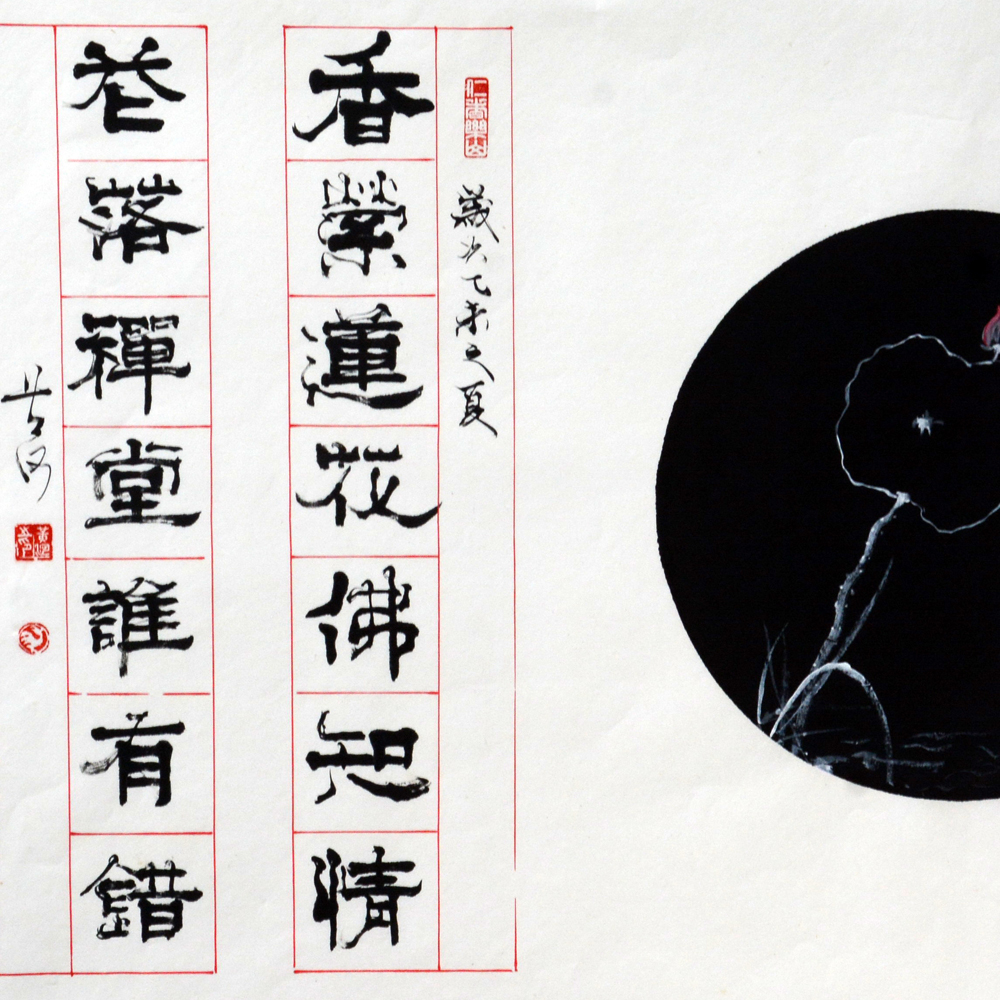 仁者樂山
歲次乙未之夏
香縈蓮花佛知情
卷落禪堂誰有錯